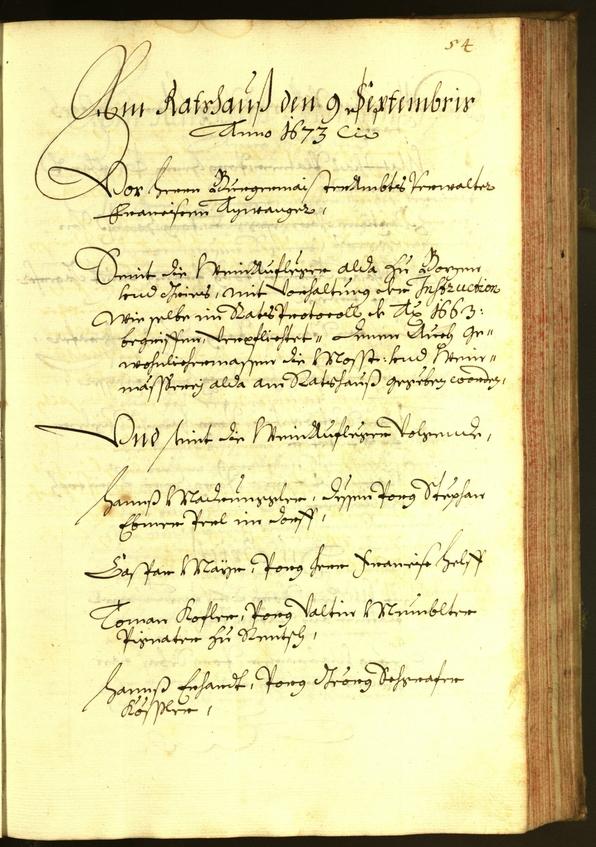 54
Am Ratshauß den 9 Septembris
Anno 1673
Vor Herrn Burgermaister Ambts Verwalter
Francisen Aÿrwanger,
Seint die Weinaufleger alda zu Bozen
und Gries, mit Vorhaltung der Instruction
wie selbe im RatsProtocoll de Aō 1663:
begriffen, verpflichtet, denen auch ge-
wohnlichermassen die Most: und Wein-
mässerey alda am Ratshauß gegeben worden,
Und seint die Weinaufleger volgende,
Hannß, dessen Porg Stephan
Ebner im Dorff,
Caspar Mayr, Porg Herr Francisc
Toman Kofler, Porg Valtin
zu Rentsch,
Hannß, Porg Georg
Kössler,